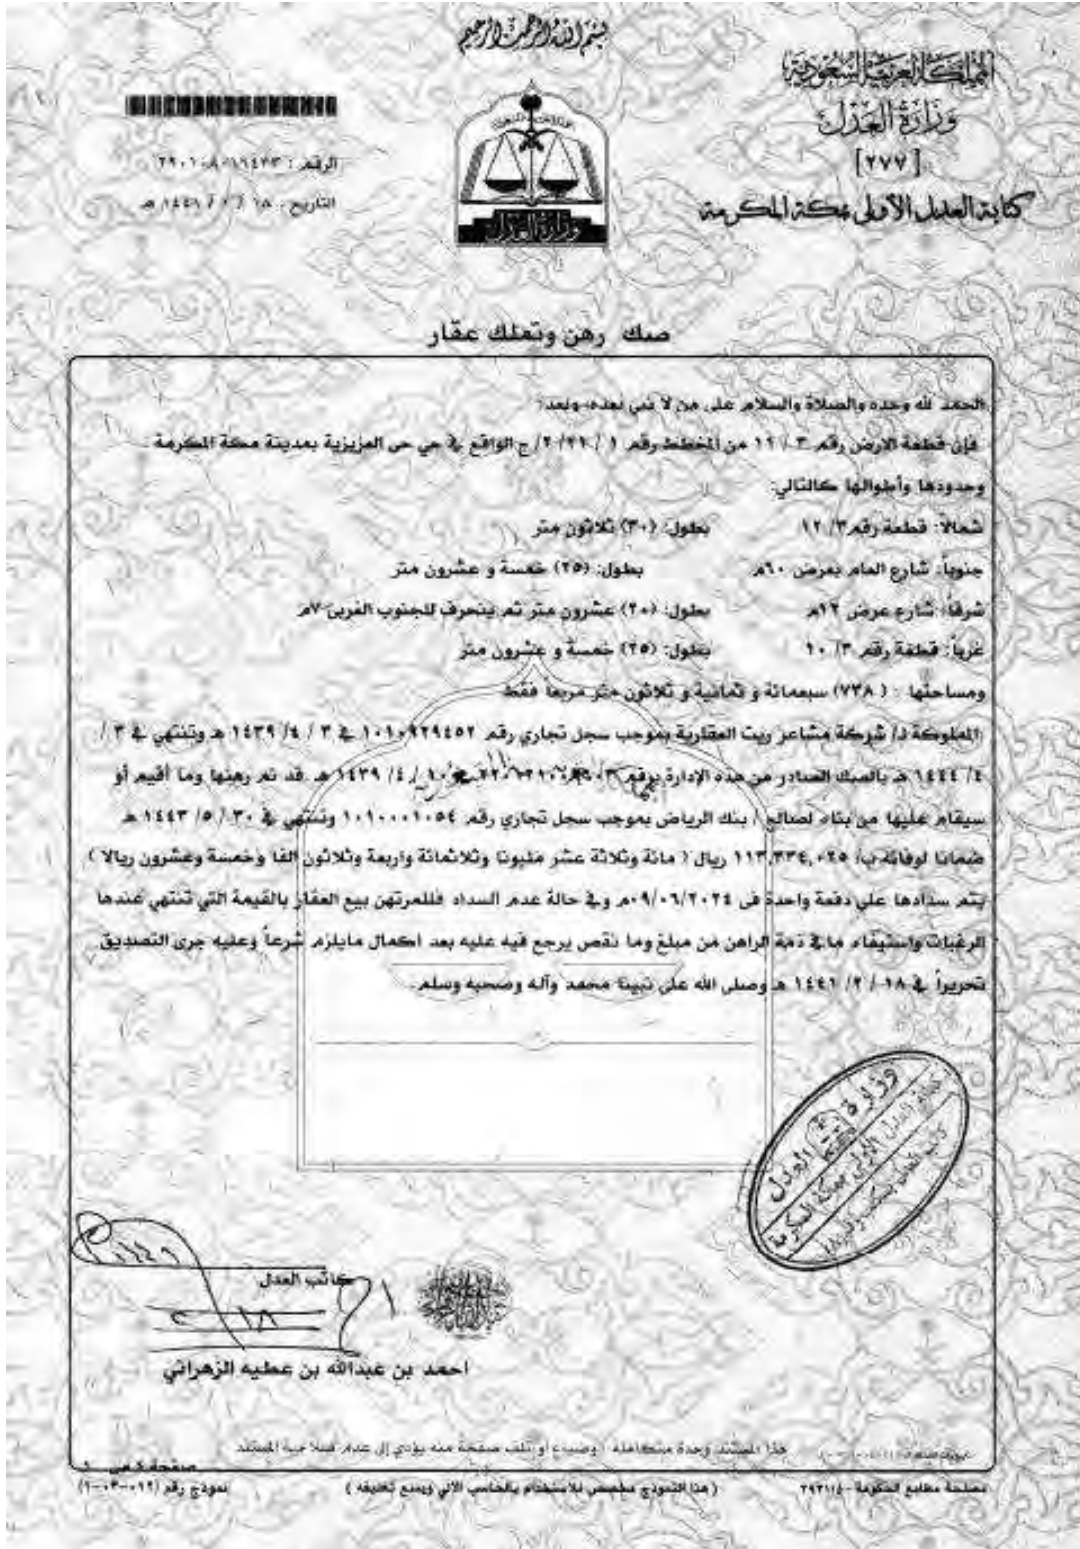 بسم الله الرحمن الرحيم
المملكة العربية السعودية
وزارة العدل
[٢٧٧]
كتابة العدل الأولى بمكة المكرمة
الرقم :
التاريخ : ١٨ / / ١٤٤١ هـ
وزارة العدل
صك رهن وتملك عقار
الحمد لله وحده والصلاة والسلام على من لا نبي بعده، وبعد:
فإن قطعة الارض رقم ٣ / ١١ من المخطط رقم ١ / ٢١ /٢/ ج الواقع في حي حى العزيزية بمدينة مكة المكرمة .
وحدودها وأطوالها كالتالي:
شمالاً: قطعة رقم ٣/ ١٢ بطول: (٣٠) ثلاثون متر
جنوباً: شارع العام بعرض ٦٠م بطول: (٢٥) خمسة و عشرون متر
شرقاً: شارع عرض ١٢م بطول: (٢٠) عشرون متر ثم ينحرف للجنوب الغربى ٧م
غرباً: قطعة رقم ٣/ ١٠ بطول: (٢٥) خمسة و عشرون متر
ومساحتها : ( ٧٣٨) سبعمائة و ثمانية و ثلاثون متر مربعاً فقط
المملوكة لـ/ شركة مشاعر ريت العقارية بموجب سجل تجاري رقم ١٠١٠٩٢٩٤٥٢ في ٣ / ٤/ ١٤٣٩ هـ وتنتهي في ٣ /
٤/ ١٤٤٤ هـ بالصك الصادر من هذه الإدارة برقم في ١٠ / ٤/ ١٤٣٩ هـ قد تم رهنها وما أقيم أو
سيقام عليها من بناء لصالح / بنك الرياض بموجب سجل تجاري رقم ١٠١٠٠٠١٠٥٤ وتنتهي في ٣٠ / ٥/ ١٤٤٣ هـ
ضمانا لوفائه ب/ ١١٣,٣٣٤,٠٢٥ ريال ( مائة وثلاثة عشر مليونا وثلاثمائة واربعة وثلاثون الفا وخمسة وعشرون ريالا )
يتم سدادها على دفعة واحدة فى ٠٩/٠٦/٢٠٢٤م وفي حالة عدم السداد فللمرتهن بيع العقار بالقيمة التي تنتهي عندها
الرغبات واستيفاء ما في ذمة الراهن من مبلغ وما نقص يرجع فيه عليه بعد اكمال مايلزم شرعاً وعليه جرى التصديق
تحريراً في ١٨ / ٢/ ١٤٤١ هـ وصلى الله على نبينا محمد وآله وصحبه وسلم .
وزارة العدل
كتابة العدل الأولى بمكة المكرمة
كاتب العدل
احمد بن عبدالله بن عطيه الزهراني
هذا المستند وحدة متكاملة ، وضياع أو تلف صفحة منه يؤدي إلى عدم صلاحية المستند
مصلحة مطابع الحكومة ( هذا النموذج مخصص للاستخدام بالحاسب الآلي ويمنع تغليفه ) نموذج رقم (١٢-٠٣-٠١)